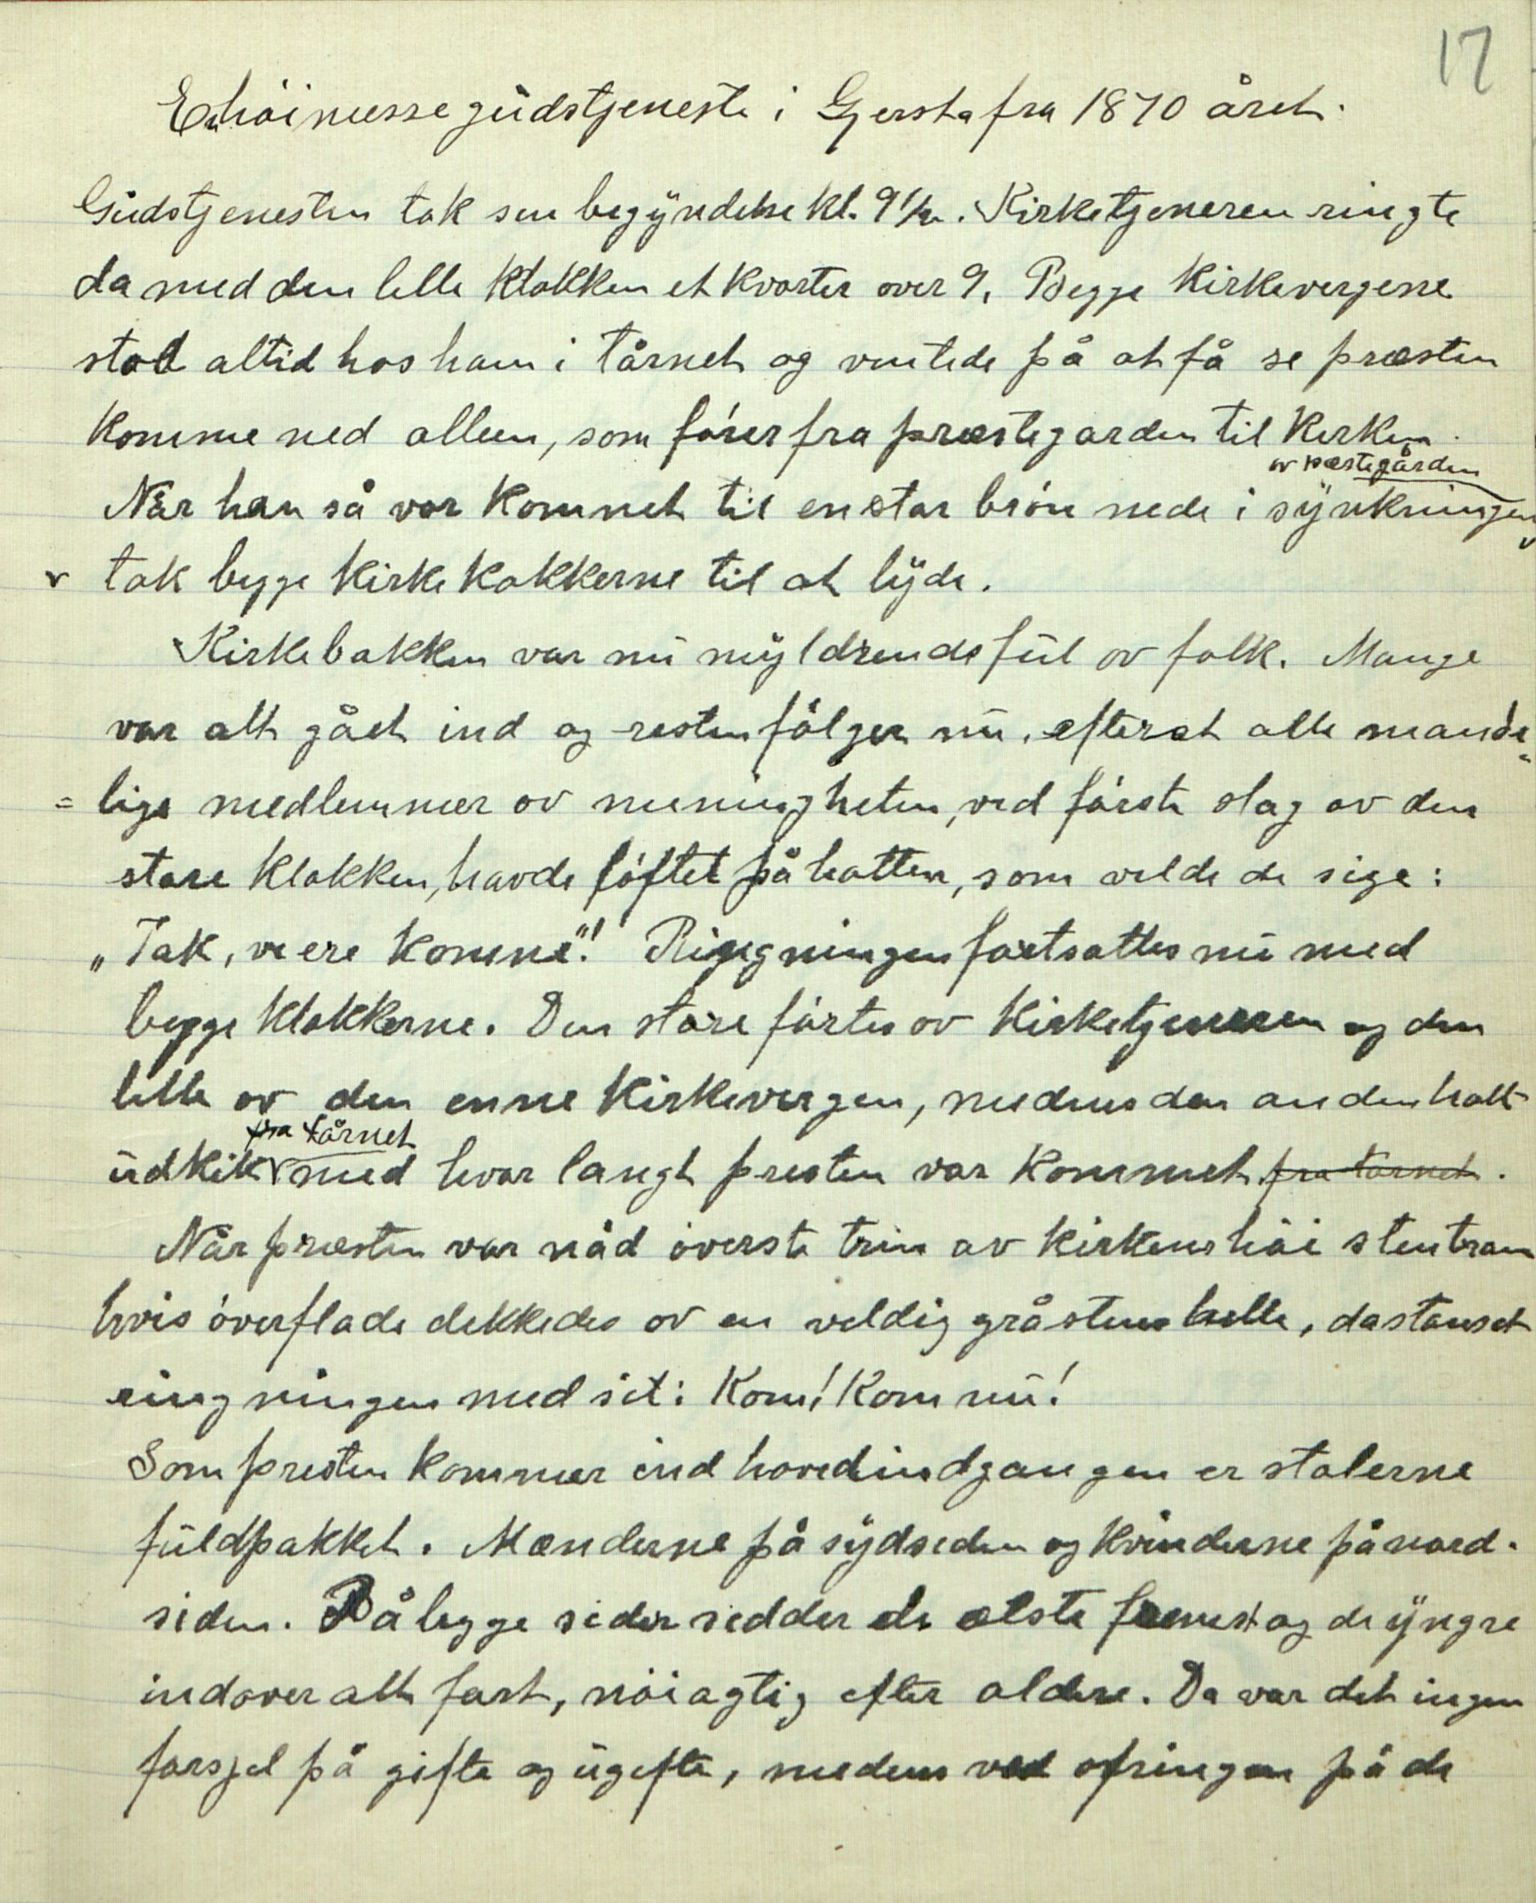 17
En höimessegudstjeneste i Gjerstad fra 1870 året.
Gudstjenesten tok sin begyndelse kl. 9½. Kirketjeneren ringte
da med den lille klokken et kvarter over 9. Begge kirkevergene
stod altid hos ham i tårnet og ventede på at få se præsten
komme ned alleen, som förer fra præstegarden til kirken.
av præstegården
Når han så var kommet til en stor brön nede i synkningen
v tok begge kirkekokkerne til at lyde.
Kirkebakken var nu myldrende ful av folk. Mange
var alt gået ind og resten fölger nu, efterat alle mande-
= lige medlemmer av menigheten, ved förste slag av den
store klokken, havde löftet på hatten, som vilde de sige:
„Tak, vi ere komne"! Ringningen fortsattes nu med
begge klokkerne. Den store förtes av kirketjeneren og den
lille av den enne kirkevergen, medens den anden holt
fra tårnet
udkik med hvor langt presten var kommet fra tårnet.
Når præsten var nåd överste trin av kirkens höi stentram
hvis överflade dekkedes av en veldig gråstens helle, da stanset
ringningen med sit: Kom! Kom nu!
Som presten kommer ind hovedindgangen er stolerne
fuldpakket. Mænderne på sydsiden og kvinderne på nord-
siden. På begge sider sidder de ælste fremst og de yngre
indover alt fort, nöiagtig efter aldere. Da var det ingen
forsjel på gifte og ugifte, medens ved ofringen på de